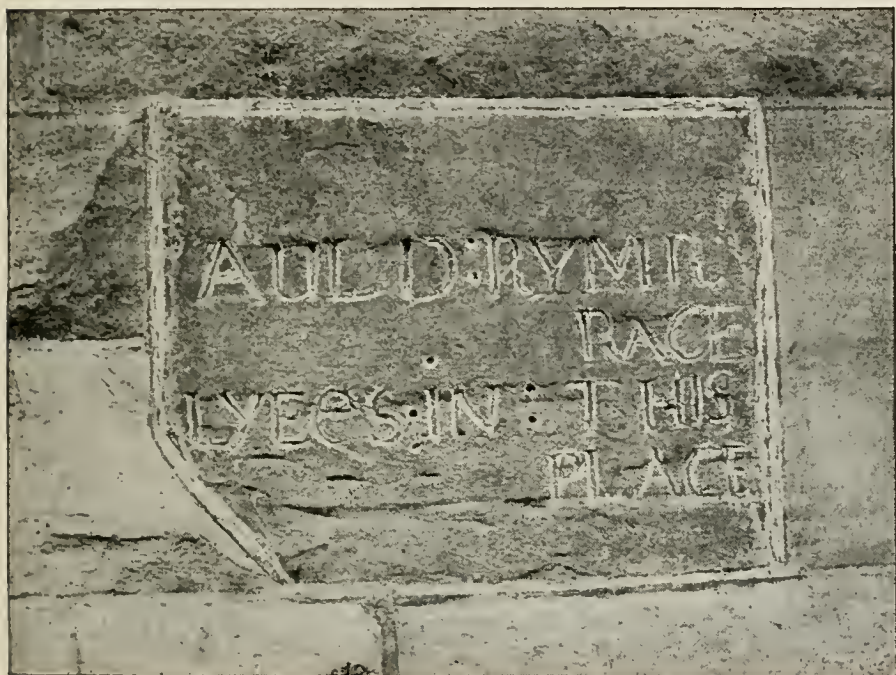 AULD:RYMR
RACE
LYEES:IN:THIS
PLACE